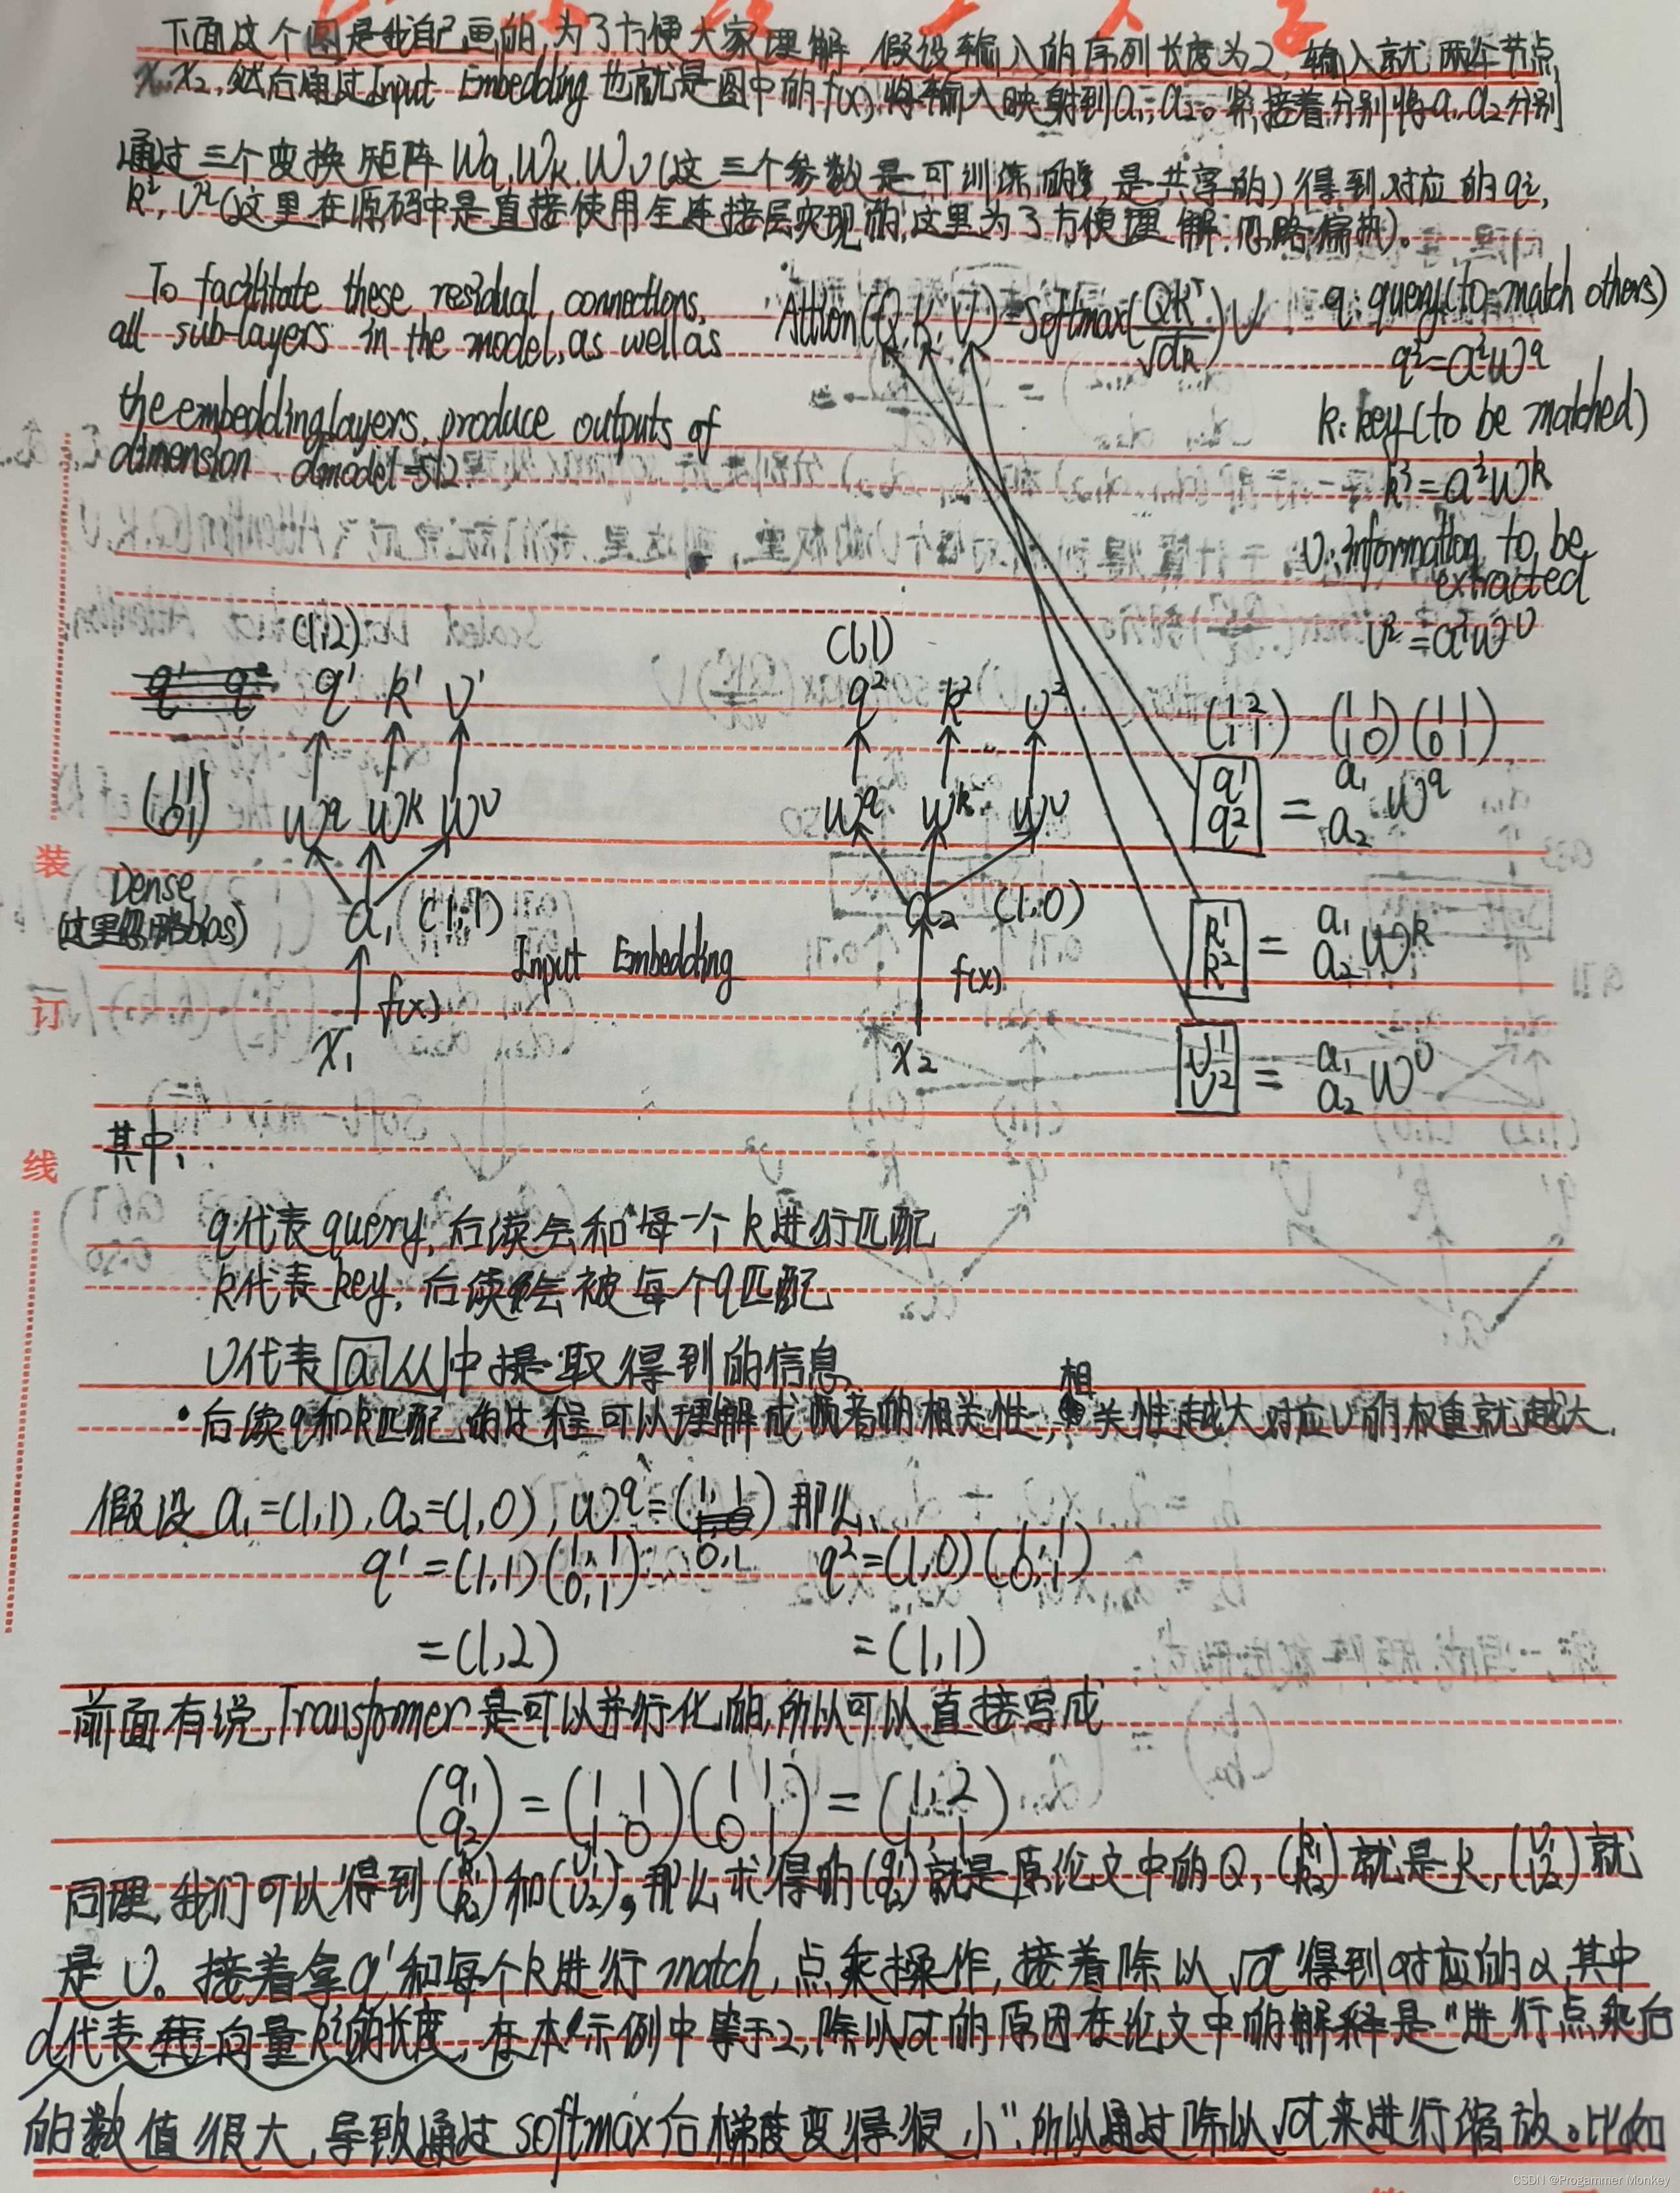 下面这个图是我自己画的,为了方便大家理解,假设输入的序列长度为2,输入就两个节点
x₁,x₂,然后通过Input Embedding也就是图中的f(x),将输入映射到a₁,a₂。紧接着分别将a₁,a₂分别
通过三个变换矩阵Wq,Wk,Wv(这三个参数是可训练的,是共享的)得到对应的qⁱ,
kⁱ,vⁱ(这里在源码中是直接使用全连接层实现的,这里为了方便理解,忽略偏执)。
To facilitate these residual connections,
all sub-layers in the model, as well as
the embedding layers, produce outputs of
dimension dmodel=512.
Attion(Q,K,V)=Softmax(QKᵀ/√dk)V
q:query(to match others)
qⁱ=aⁱWq
k:key(to be matched)
kⁱ=aⁱWk
v:information to be
extracted
vⁱ=aⁱWv
(1,2) (1,1)
q¹ k¹ v¹ q² k² v²
(1 1
0 1) Wq Wk Wv Wq Wk Wv
Dense
(这里忽略bias)
a₁ (1,1) a₂ (1,0)
f(x) Input Embedding f(x)
x₁ x₂
(1 2
1 1) (1 1
1 0) (1 1
0 1)
q¹
q² = a₁
a₂ Wq
k¹
k² = a₁
a₂ Wk
v¹
v² = a₁
a₂ Wv
装
订
线
其中,
q代表query,后读会和每一个k进行匹配
k代表key,后读会被每个q匹配
v代表a从中提取得到的信息
·后读q和k匹配的过程可以理解成两者的相关性,相关性越大对应v的权重就越大.
假设a₁=(1,1),a₂=(1,0),Wq=(1,1
0,1)那么、
q¹=(1,1)(1,1
0,1) q²=(1,0)(1,1
0,1)
=(1,2) =(1,1)
前面有说Transformer是可以并行化的,所以可以直接写成
(q₁
q₂)=(1 1
1 0)(1 1
0 1)=(1,2
1,1)
同理,我们可以得到(k₁
k₂)和(v₁
v₂),那么求得的(q₁
q₂)就是原论文中的Q,(k₁
k₂)就是K,(v₁
v₂)就
是V。接着拿q¹和每个k进行match,点乘操作,接着除以√d得到对应的α,其中
d代表向量kⁱ的长度,在本示例中等于2,除以√d的原因在论文中的解释是"进行点乘后
的数值很大,导致通过softmax后梯度变得很小",所以通过除以√d来进行缩放。比如
CSDN @Progammer Monkey